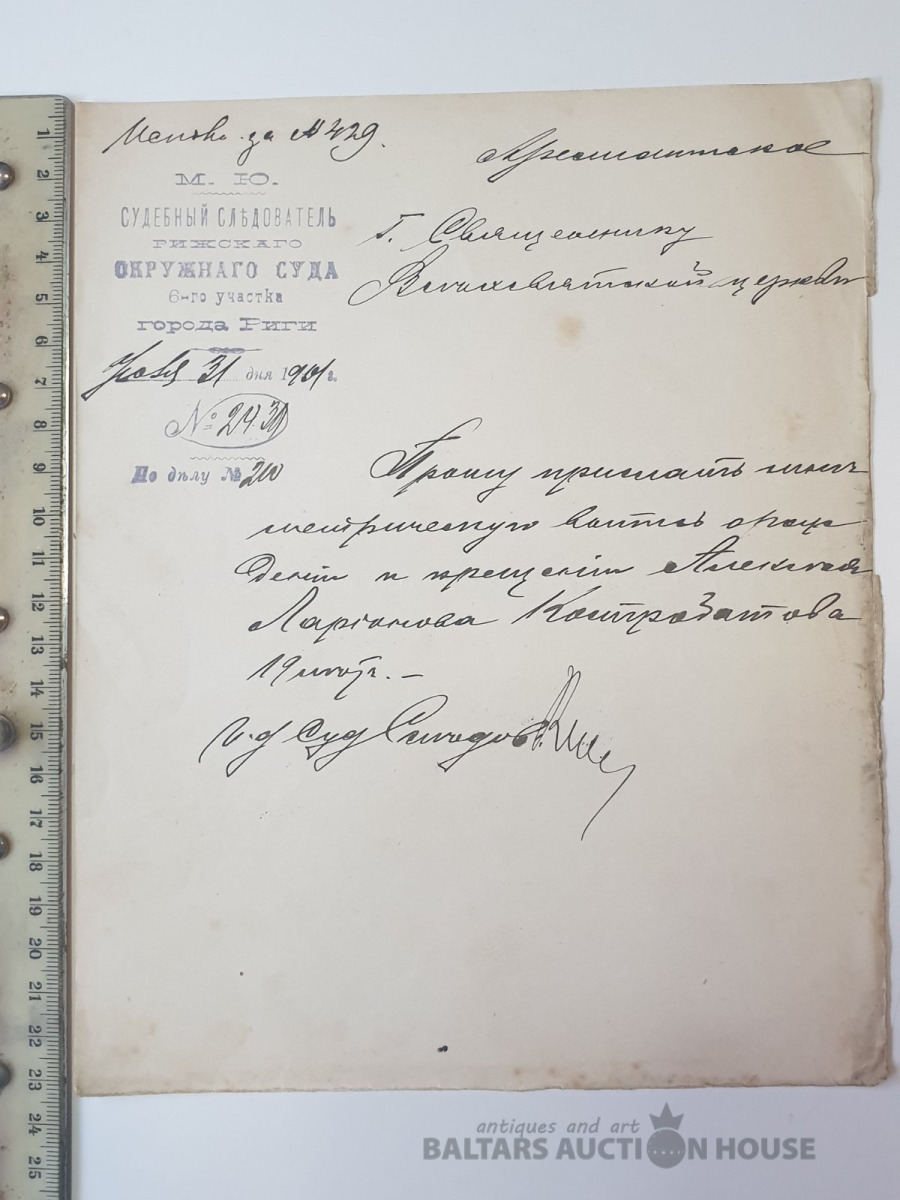 Исполн. за № 429.
Арестантское
М. Ю.
СУДЕБНЫЙ СЛѢДОВАТЕЛЬ
РИЖСКАГО
ОКРУЖНАГО СУДА
6-го участка
города Риги
31 дня 1901 г.
№ 2430
По дѣлу № 210
Г. Священнику
Всехсвятской церкви
Прошу прислать мнѣ
метрическую о рож-
деніи и крещеніи Алексѣя
Ларіонова
19 лѣтъ. –
И. д. Суд. Слѣдов.
1
2
3
4
5
6
7
8
9
10
11
12
13
14
15
16
17
18
19
20
21
22
23
24
25
antiques and art
BALTARS AUCTION HOUSE